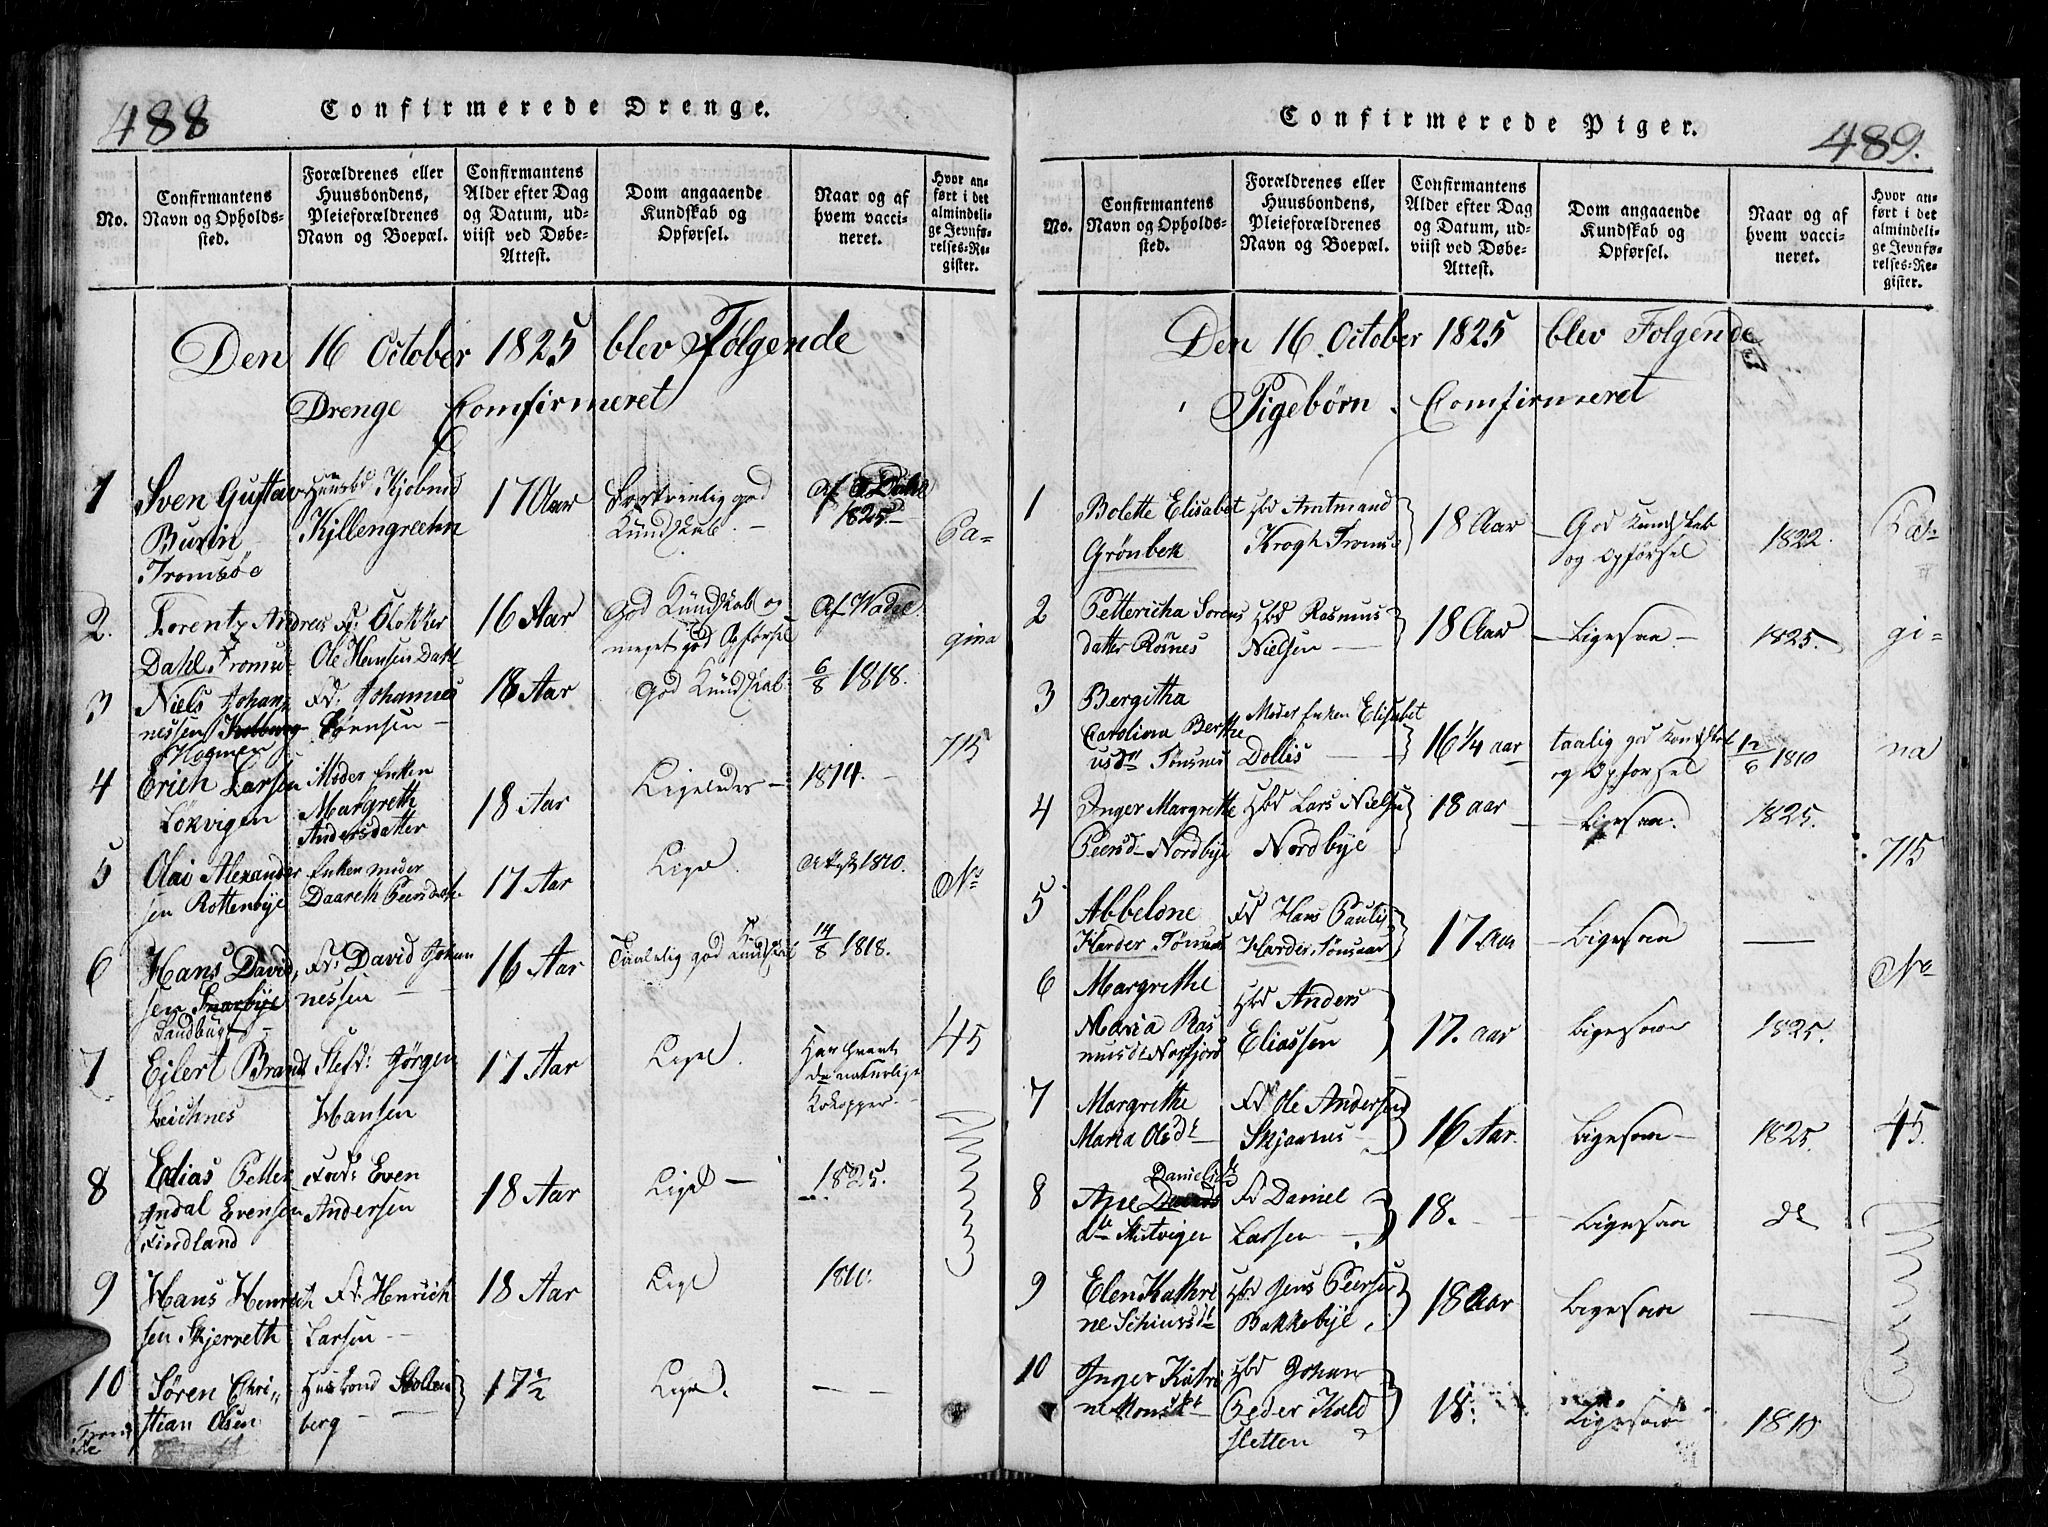 488
Confirmerede Drenge.
No.
Confirmantens
Navn og Opholds-
sted.
Forældrenes eller
Huusbondens,
Pleieforældrenes
Navn og Boepæl.
Confirmantens
Alder efter Dag
og Datum, ud-
viist ved Døbe-
Attest.
Dom angaaende
Kundskab og
Opførsel.
Naar og af
hvem vacci-
neret.
Hvor an-
ført i det
almindeli-
ge Jevnfø-
relses-Re-
gister.
Den 16 October 1825 blev Følgende
Drenge Comfirmeret
1
Sven Gustav
Burin
Tromsöe
Huusbd Kjøbmd
Kjllengreehn
17 Aar
god
Kundskab. -
Af Dahl
1825.-
2.
Lorentz Andreas
Dahl Troms-
Fd: Klokker
Ole Hansen Dahl
16 Aar
God Kundskab og
meget god Opførsel
Af Wadel
3
Niels Johan-
nessen
Fd: Johannes
Sørensen -
18 Aar.
God Kundskab:
6/8 1818.
4
Erich Larsen
Lökvigen
Moder Enken
Margreth
Andersdatter
18 Aar
Ligeledes -
1814.-
5
Olai Alexander
sen Rottenbye
Enken moder
Daareth Peersdatr
17 Aar
Lige.
1810.
6
Hans David
sen Snarbye
Sandbugt -
Fd: David Johan
nessen
16 Aar
Taalelig god Kundskab
14/8 1818.
7
Ejlert Brandt
Leichnes
Stefd: Jörgen
Hansen
17 Aar
Lige.
Har havt
de naturlige
Kokopper -
8
Edias Petter
Andal Evensen
Findland
Fad: Even
Andersen
18 Aar
Lige -
1825.
9
Hans Henrich
sen Skjerreth
Fd: Henrich
Larsen -
18 Aar
Lige
1810.
10
Tromsöe
Søren Chri-
stian Olsen
Husbond Stollen
berg -
17 1/2
Lige.
- -
Pa-
gina
715
No
45
489.
Confirmerede Piger.
No.
Confirmantens
Navn og Opholds-
sted.
Forældrenes eller
Huusbondens,
Pleieforældrenes
Navn og Boepæl.
Confirmantens
Alder efter Dag
og Datum, ud-
viist ved Døbe-
Attest.
Dom angaaende
Kundskab og
Opførsel.
Naar og af
hvem vacci-
neret.
Hvor an-
ført i det
almindeli-
ge Jevnfø-
relses-Re-
gister.
Den 16. October 1825 blev Folgende
Pigebørn. Comfirmeret
1
Bolette Elisabet
Grönbek
Hbd Amtmand
Krogh Troms
18 Aar
God Kundskab
og Opførsel
1822.
2
Pettericha Sorens
datter Röines
Hbd Rasmus
Nielsen -
18 Aar
- Ligesaa -
1825.
3
Bergitha
Carolina Berthe
usdr Tønsnes
Moder Enken Elisabet
Dollis -
16 1/4 aar
taalig god Kundskab
og Opforsel
12/6 1810
4
Inger Margrethe
Peersd- Nordbye
Hbd Lars Nielsen
Nordbye
18 aar
- Ligesaa.
1825.
5
Abbelone
Harder Tønsnes
Fd Hans Pauls
Harder. Tønsnes
17 aar
- Ligesaa
-
6
Margrethe
Maria Ras
musdr Norfjord
Hbd Anders
Eliassen
17. aar
Ligesaa
1825.
7
Margrethe
Maria Olsdr
Fd Ole Andersen
Skjaanes -
16 Aar.
Ligesaa -
1825.
8
Danielsd
Ane
dtr Skitvigen
Fd Daniel
Larsen - .
18.
Ligesaa
dl
9
Elen Kathri
ne Schiursdr
Hbd Jens Peersen
Bakkebye.
18 aar
Ligesaa
-
10
Inger Kathri
ne Monsdr
Hbd Johan
Peder Kald
sletten
18.
Ligesaa
1810
Pa-
gi-
na
715
No
45.